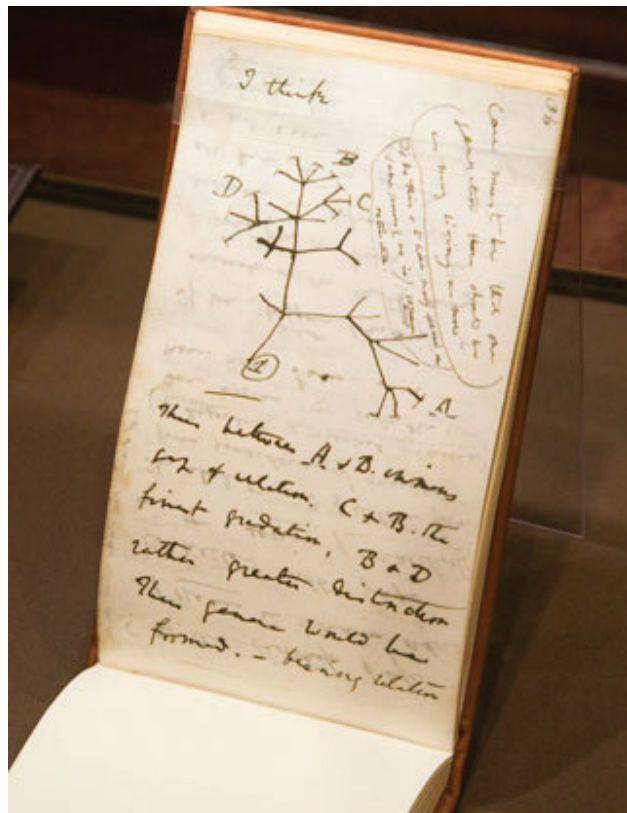 I think
36
Case must be that one
generation then should be
as many living as now
To do this & to have many species in
same genus (as is) requires
extinction.
B
D
C
1
A
Thus between A & B. immens
gap of relation. C & B. the
finest gradation, B & D
rather greater distinction
Thus genera would be
formed. — bearing relation